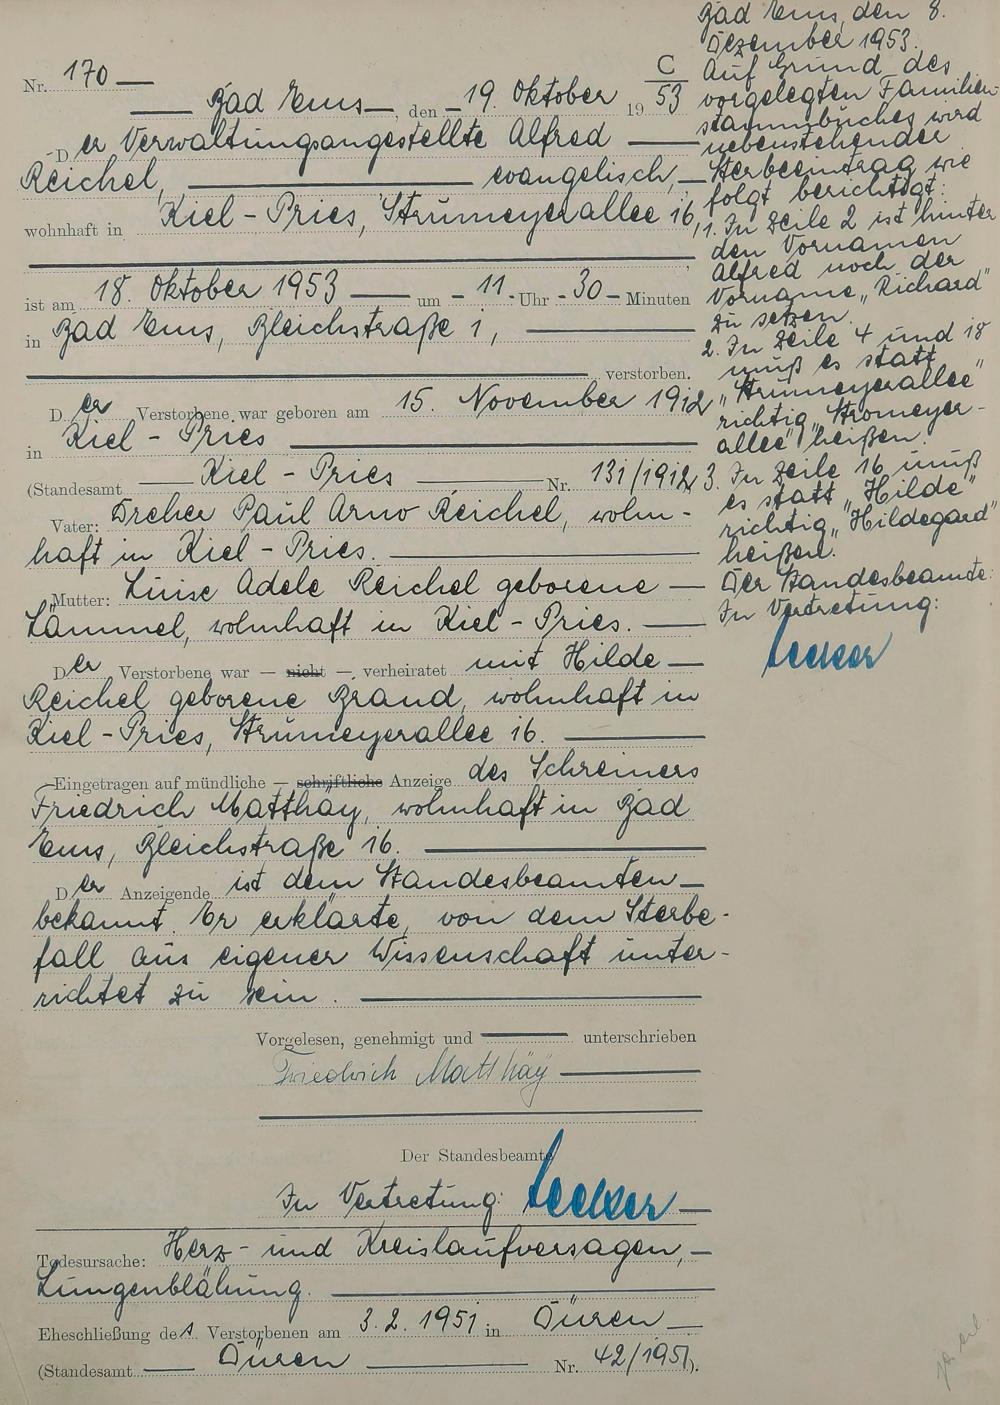 C
Nr. 170
Bad Ems, den 19. Oktober 1953
Der Verwaltungsangestellte Alfred
Reichel, evangelisch,
wohnhaft in Kiel - Pries, Strumeyerallee 16,
ist am 18. Oktober 1953 um - 11 - Uhr - 30 - Minuten
in Bad Ems, Bleichstraße 1,
verstorben.
Der Verstorbene war geboren am 15. November 1912
in Kiel - Pries
(Standesamt Kiel - Pries Nr. 131/1912
Vater: Dreher Paul Arno Reichel, wohn-
haft in Kiel - Pries.
Mutter: Luise Adele Reichel geborene
Lämmel, wohnhaft in Kiel - Pries.
Der Verstorbene war — nicht — verheiratet mit Hilde
Reichel geborene Brand, wohnhaft in
Kiel - Pries, Strumeyerallee 16.
Eingetragen auf mündliche — schriftliche Anzeige des Schreiners
Friedrich Matthäy, wohnhaft in Bad
Ems, Bleichstraße 16.
Der Anzeigende ist dem Standesbeamten
bekannt. Er erklärte, von dem Sterbe-
fall aus eigener Wissenschaft unter-
richtet zu sein.
Vorgelesen, genehmigt und unterschrieben
Friedrich Matthäy
Der Standesbeamte
In Vertretung:
Todesursache: Herz- und Kreislaufversagen,
Lungenblähung.
Eheschließung des Verstorbenen am 3.2.1951 in Düren
(Standesamt Düren Nr. 42/1951).
Bad Ems, den 8.
Dezember 1953.
Auf Grund des
vorgelegten Familien-
stammbuches wird
nebenstehender
Sterbeeintrag wie
folgt berichtigt:
1. In Zeile 2 ist hinter
den Vornamen
Alfred noch der
Vorname „Richard"
zu setzen.
2. In Zeile 4 und 18
muß es statt
„Strumeyerallee"
richtig „Stromeyer-
allee" heißen.
3. In Zeile 16 muß
es statt „Hilde"
richtig „Hildegard"
heißen.
Der Standesbeamte:
In Vertretung: